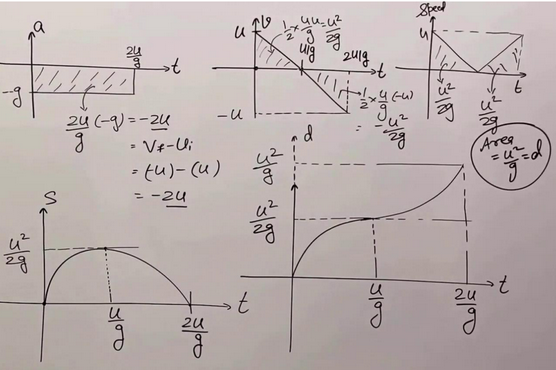 a
2u/g
t
-g
2u/g (-g) = -2u
= Vf - Ui
= (-u) - (u)
= -2u
V
u
1/2 × u u/g = u²/2g
u/g
2u/g
t
-u
1/2 × u/g (-u)
= -u²/2g
Speed
u
u
t
u²/2g
u²/2g
Area
= u²/g = d
S
u²/2g
u/g
2u/g
t
d
u²/g
u²/2g
u/g
2u/g
t